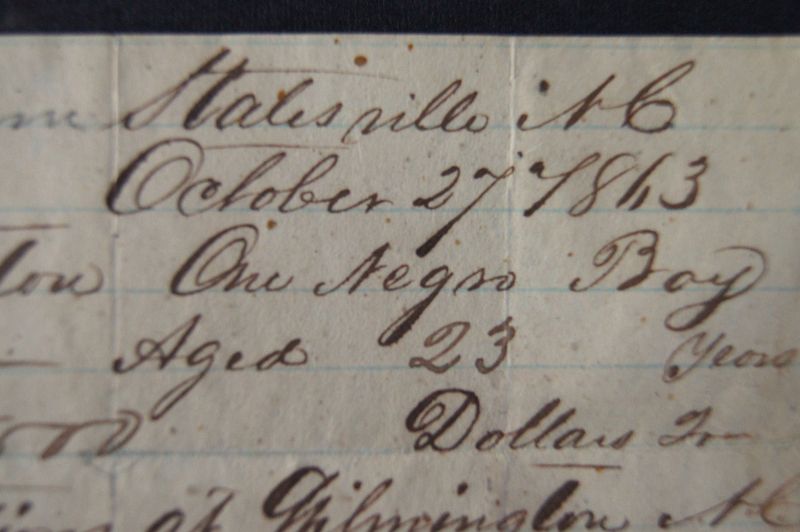 Statesville N C
October 27 1863
One Negro Boy
Aged 23 Years
Dollars
of Wilmington N C